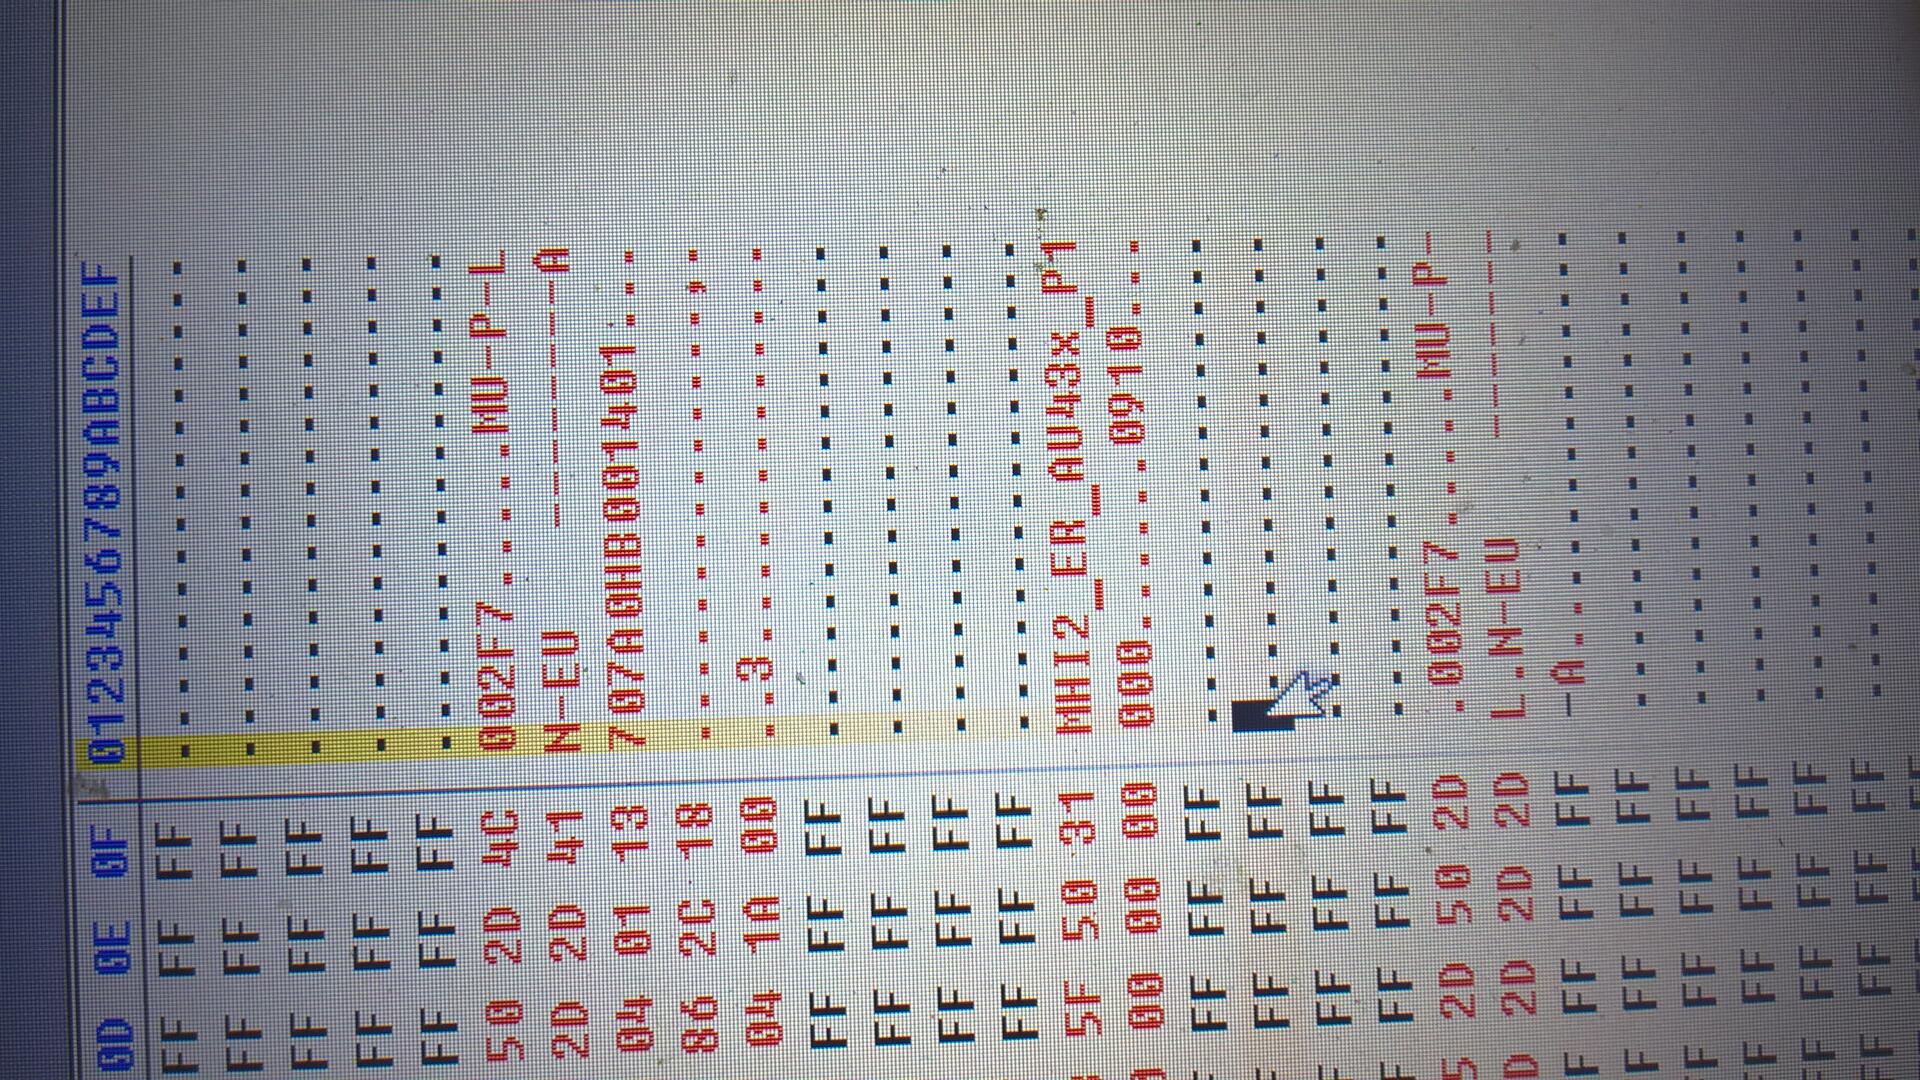 0D 0E 0F 0123456789ABCDEF
FF FF FF ................
FF FF FF ................
FF FF FF ................
FF FF FF ................
FF FF FF ................
50 2D 4C 002F7.....MU-P-L
2D 2D 41 N-EU   --------A
04 01 13 707A0HB001401...
86 2C 18 ..............,.
04 1A 00 ..3.............
FF FF FF ................
FF FF FF ................
FF FF FF ................
FF FF FF ................
5F 50 31 MHI2_ER_AU43x_P1
00 00 00 000......0910...
FF FF FF ................
FF FF FF ...............
FF FF FF ................
FF FF FF ................
2D 50 2D .002F7.....MU-P-
2D 2D 2D L.N-EU   -------
FF FF FF -A..............
FF FF FF ................
FF FF FF ................
FF FF FF ................
FF FF FF ................
FF FF FF ................